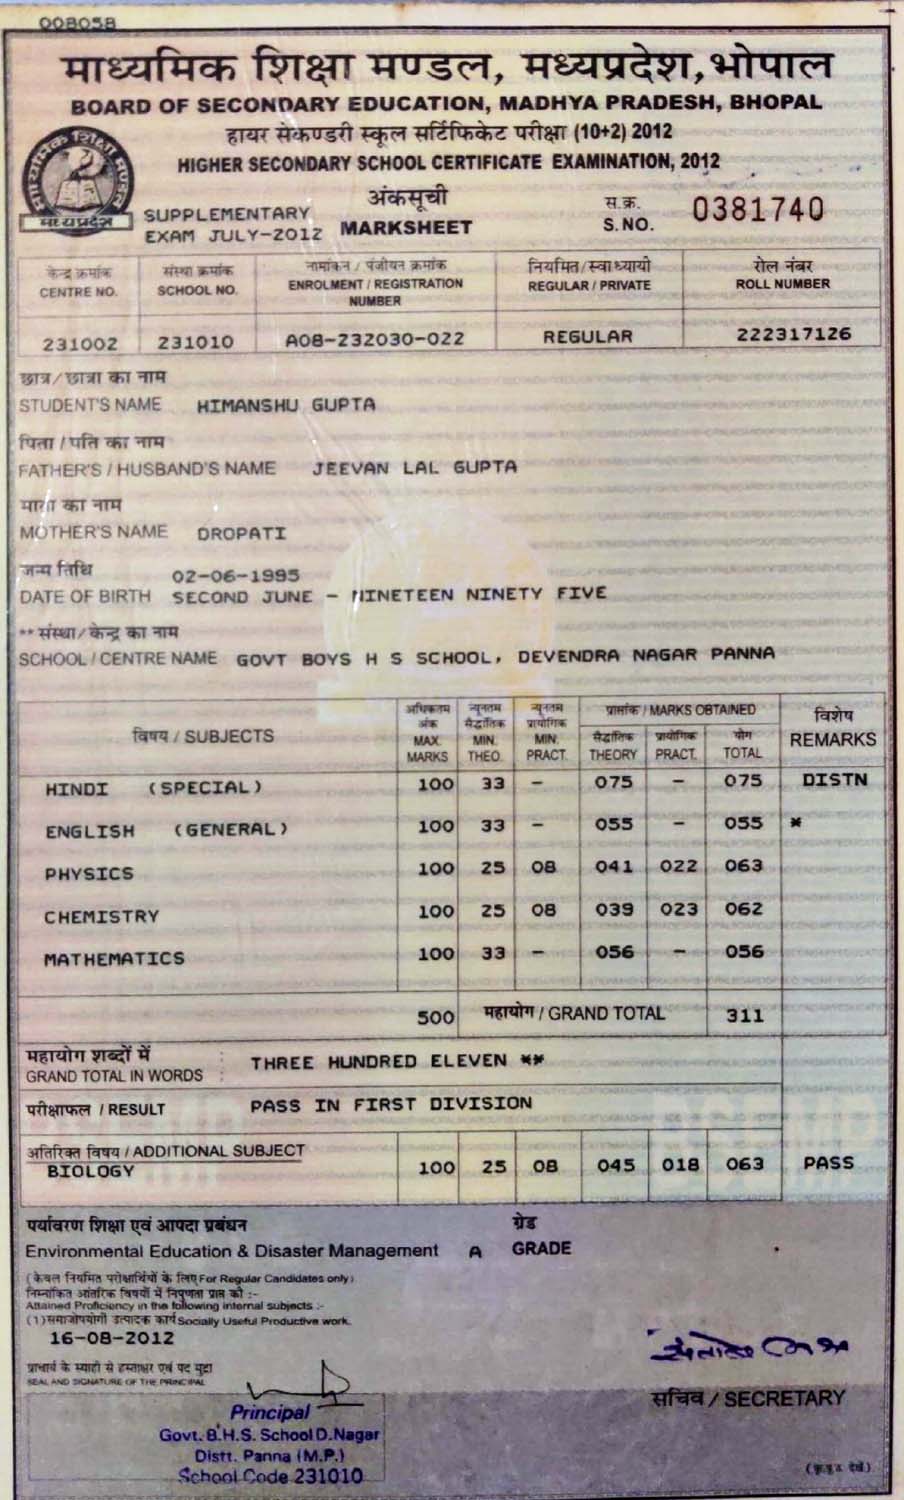 008058
माध्यमिक शिक्षा मण्डल, मध्यप्रदेश, भोपाल
BOARD OF SECONDARY EDUCATION, MADHYA PRADESH, BHOPAL
हायर सेकण्डरी स्कूल सर्टिफिकेट परीक्षा (10+2) 2012
HIGHER SECONDARY SCHOOL CERTIFICATE EXAMINATION, 2012
मध्यप्रदेश
SUPPLEMENTARY EXAM JULY-2012
अंकसूची
MARKSHEET
स.क्र. S. NO. 0381740
केन्द्र क्रमांक संस्था क्रमांक नामांकन / पंजीयन क्रमांक नियमित/स्वाध्यायी रोल नंबर
CENTRE NO. SCHOOL NO. ENROLMENT / REGISTRATION NUMBER REGULAR / PRIVATE ROLL NUMBER
231002 231010 A08-232030-022 REGULAR 222317126
छात्र/छात्रा का नाम
STUDENT'S NAME HIMANSHU GUPTA
पिता / पति का नाम
FATHER'S / HUSBAND'S NAME JEEVAN LAL GUPTA
माता का नाम
MOTHER'S NAME DROPATI
जन्म तिथि 02-06-1995
DATE OF BIRTH SECOND JUNE - NINETEEN NINETY FIVE
** संस्था/केन्द्र का नाम
SCHOOL / CENTRE NAME GOVT BOYS H S SCHOOL, DEVENDRA NAGAR PANNA
विषय / SUBJECTS अधिकतम अंक MAX. MARKS न्यूनतम सैद्धांतिक MIN. THEO. न्यूनतम प्रायोगिक MIN. PRACT. प्राप्तांक / MARKS OBTAINED विशेष REMARKS
सैद्धांतिक THEORY प्रायोगिक PRACT. योग TOTAL
HINDI (SPECIAL) 100 33 - 075 - 075 DISTN
ENGLISH (GENERAL) 100 33 - 055 - 055 *
PHYSICS 100 25 08 041 022 063
CHEMISTRY 100 25 08 039 023 062
MATHEMATICS 100 33 - 056 - 056
500 महायोग / GRAND TOTAL 311
महायोग शब्दों में
GRAND TOTAL IN WORDS : THREE HUNDRED ELEVEN **
परीक्षाफल / RESULT PASS IN FIRST DIVISION
अतिरिक्त विषय / ADDITIONAL SUBJECT
BIOLOGY 100 25 08 045 018 063 PASS
पर्यावरण शिक्षा एवं आपदा प्रबंधन ग्रेड
Environmental Education & Disaster Management A GRADE
(केवल नियमित परीक्षार्थियों के लिए/For Regular Candidates only)
निम्नांकित आंतरिक विषयों में निपुणता प्राप्त की :-
Attained Proficiency in the following internal subjects :-
(1) समाजोपयोगी उत्पादक कार्य Socially Useful Productive work.
16-08-2012
प्राचार्य के स्याही से हस्ताक्षर एवं पद मुद्रा
SEAL AND SIGNATURE OF THE PRINCIPAL
सचिव / SECRETARY
Principal
Govt. B.H.S. School D.Nagar
Distt. Panna (M.P.)
School Code 231010